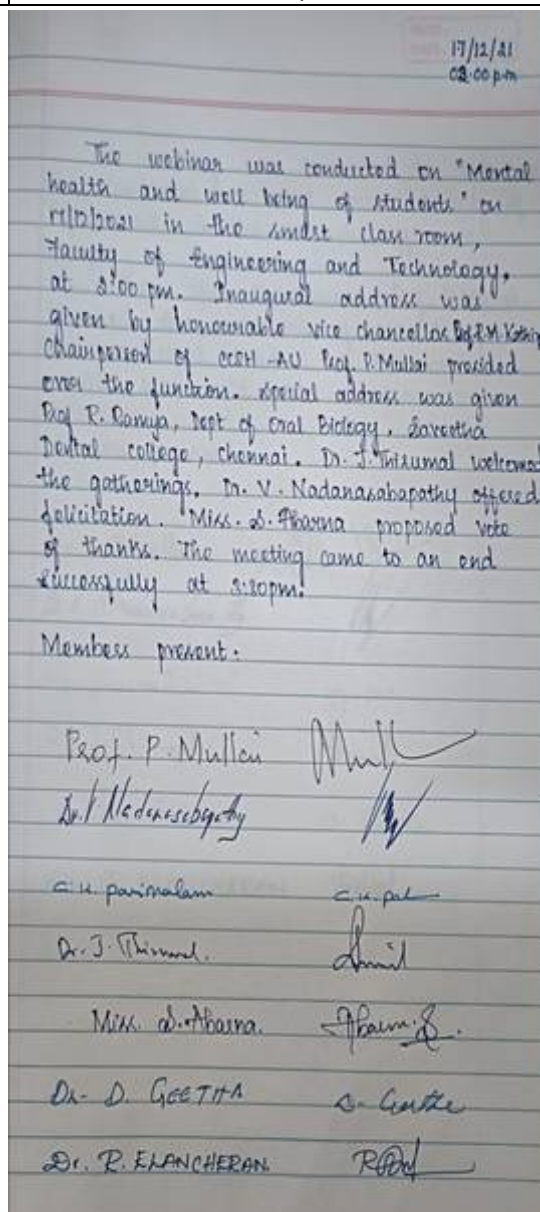 17/12/21
03.00 p.m
The webinar was conducted on "Mental
health and well being of students" on
17/12/2021 in the smart class room,
Faculty of Engineering and Technology.
at 3:00 pm. Inaugural address was
given by honourable vice chancellor Prof. R.M. Kathir
Chairperson of CCSH-AU Prof. P. Mullai presided
over the function. Special address was given
Prof R. Ramya, Dept of Oral Biology, Saveetha
Dental college, chennai. Dr. J. Thirumal welcomed
the gatherings. Dr. V. Nadanasabapathy offered
felicitation. Miss. S. Abarna proposed vote
of thanks. The meeting came to an end
successfully at
Members present:
Prof. P. Mullai
Dr. V Nadanasabapathy
C.K. parimalam
Dr. J. Thirumal.
Miss. S. Abarna. Abarna. S.
Dr. D. GEETHA D. Geetha
Dr. R. ELANCHERAN